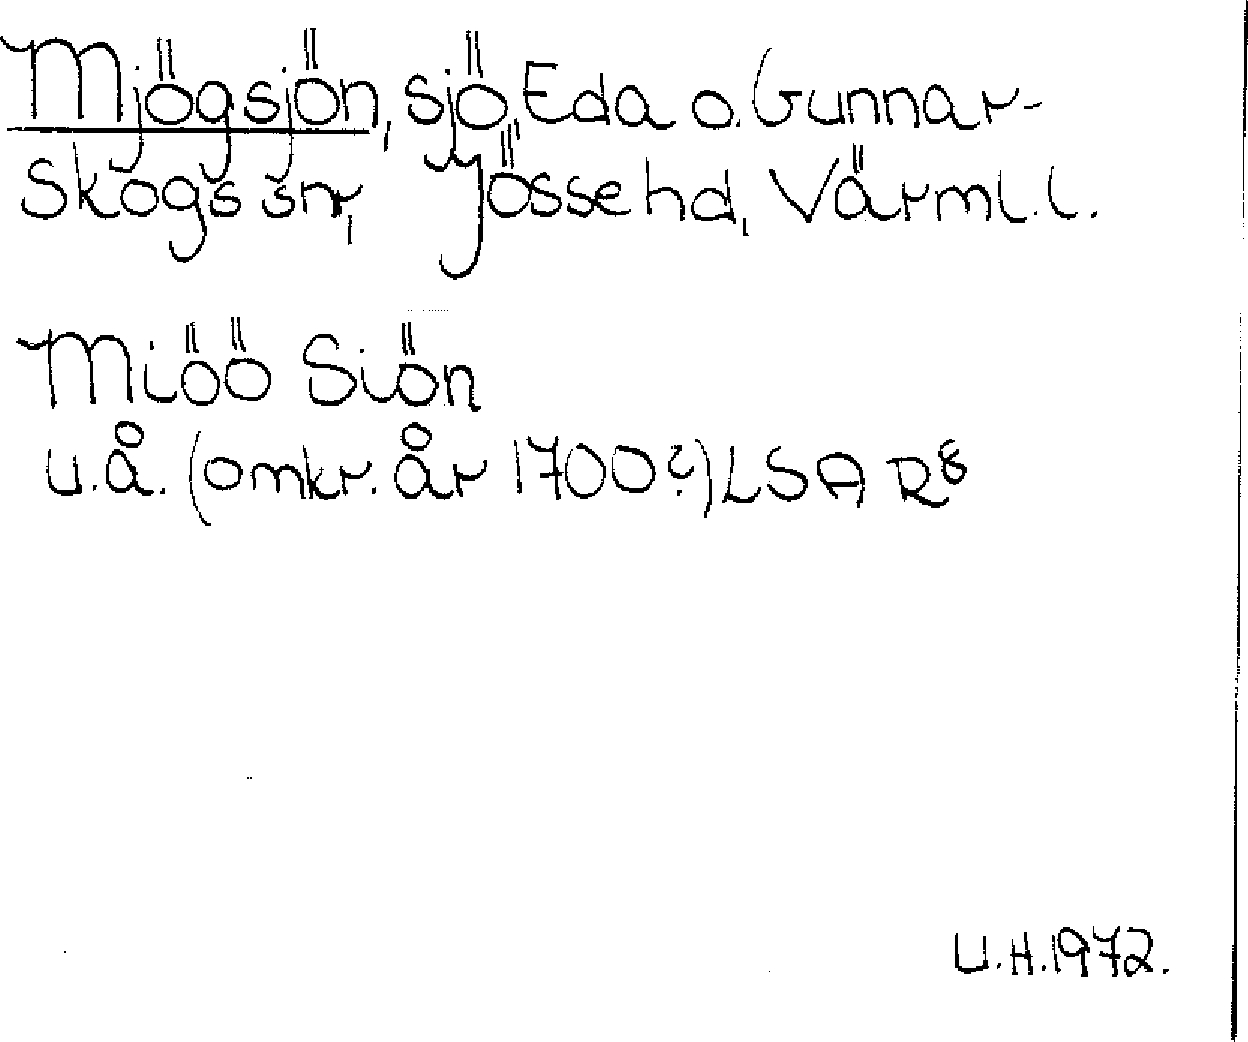 Mjögsjön, sjö, Eda o. Gunnar-
skogs snr, Jösse hd, Värml. l.
Miöö Siön
u.å. (omkr. år 1700?) LSA R8
U.H. 1972.